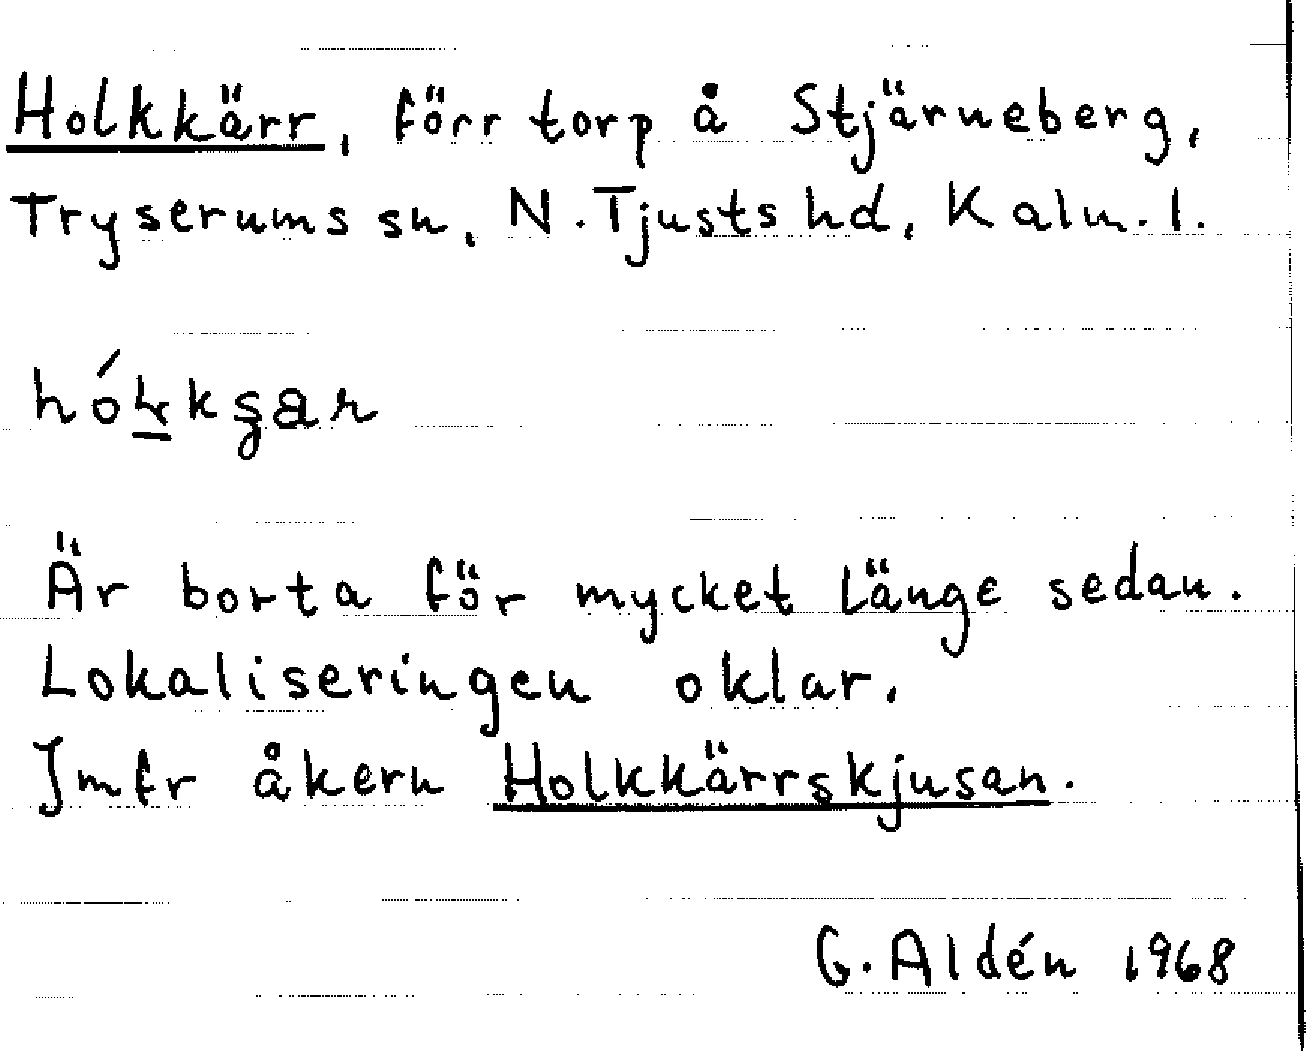 Holkkärr, förr torp å Stjärneberg,
Tryserums sn, N. Tjusts hd, Kalm. l.
Är borta för mycket länge sedan.
Lokaliseringen oklar.
Jmfr åkern Holkkärrskjusan.
G. Aldén 1968